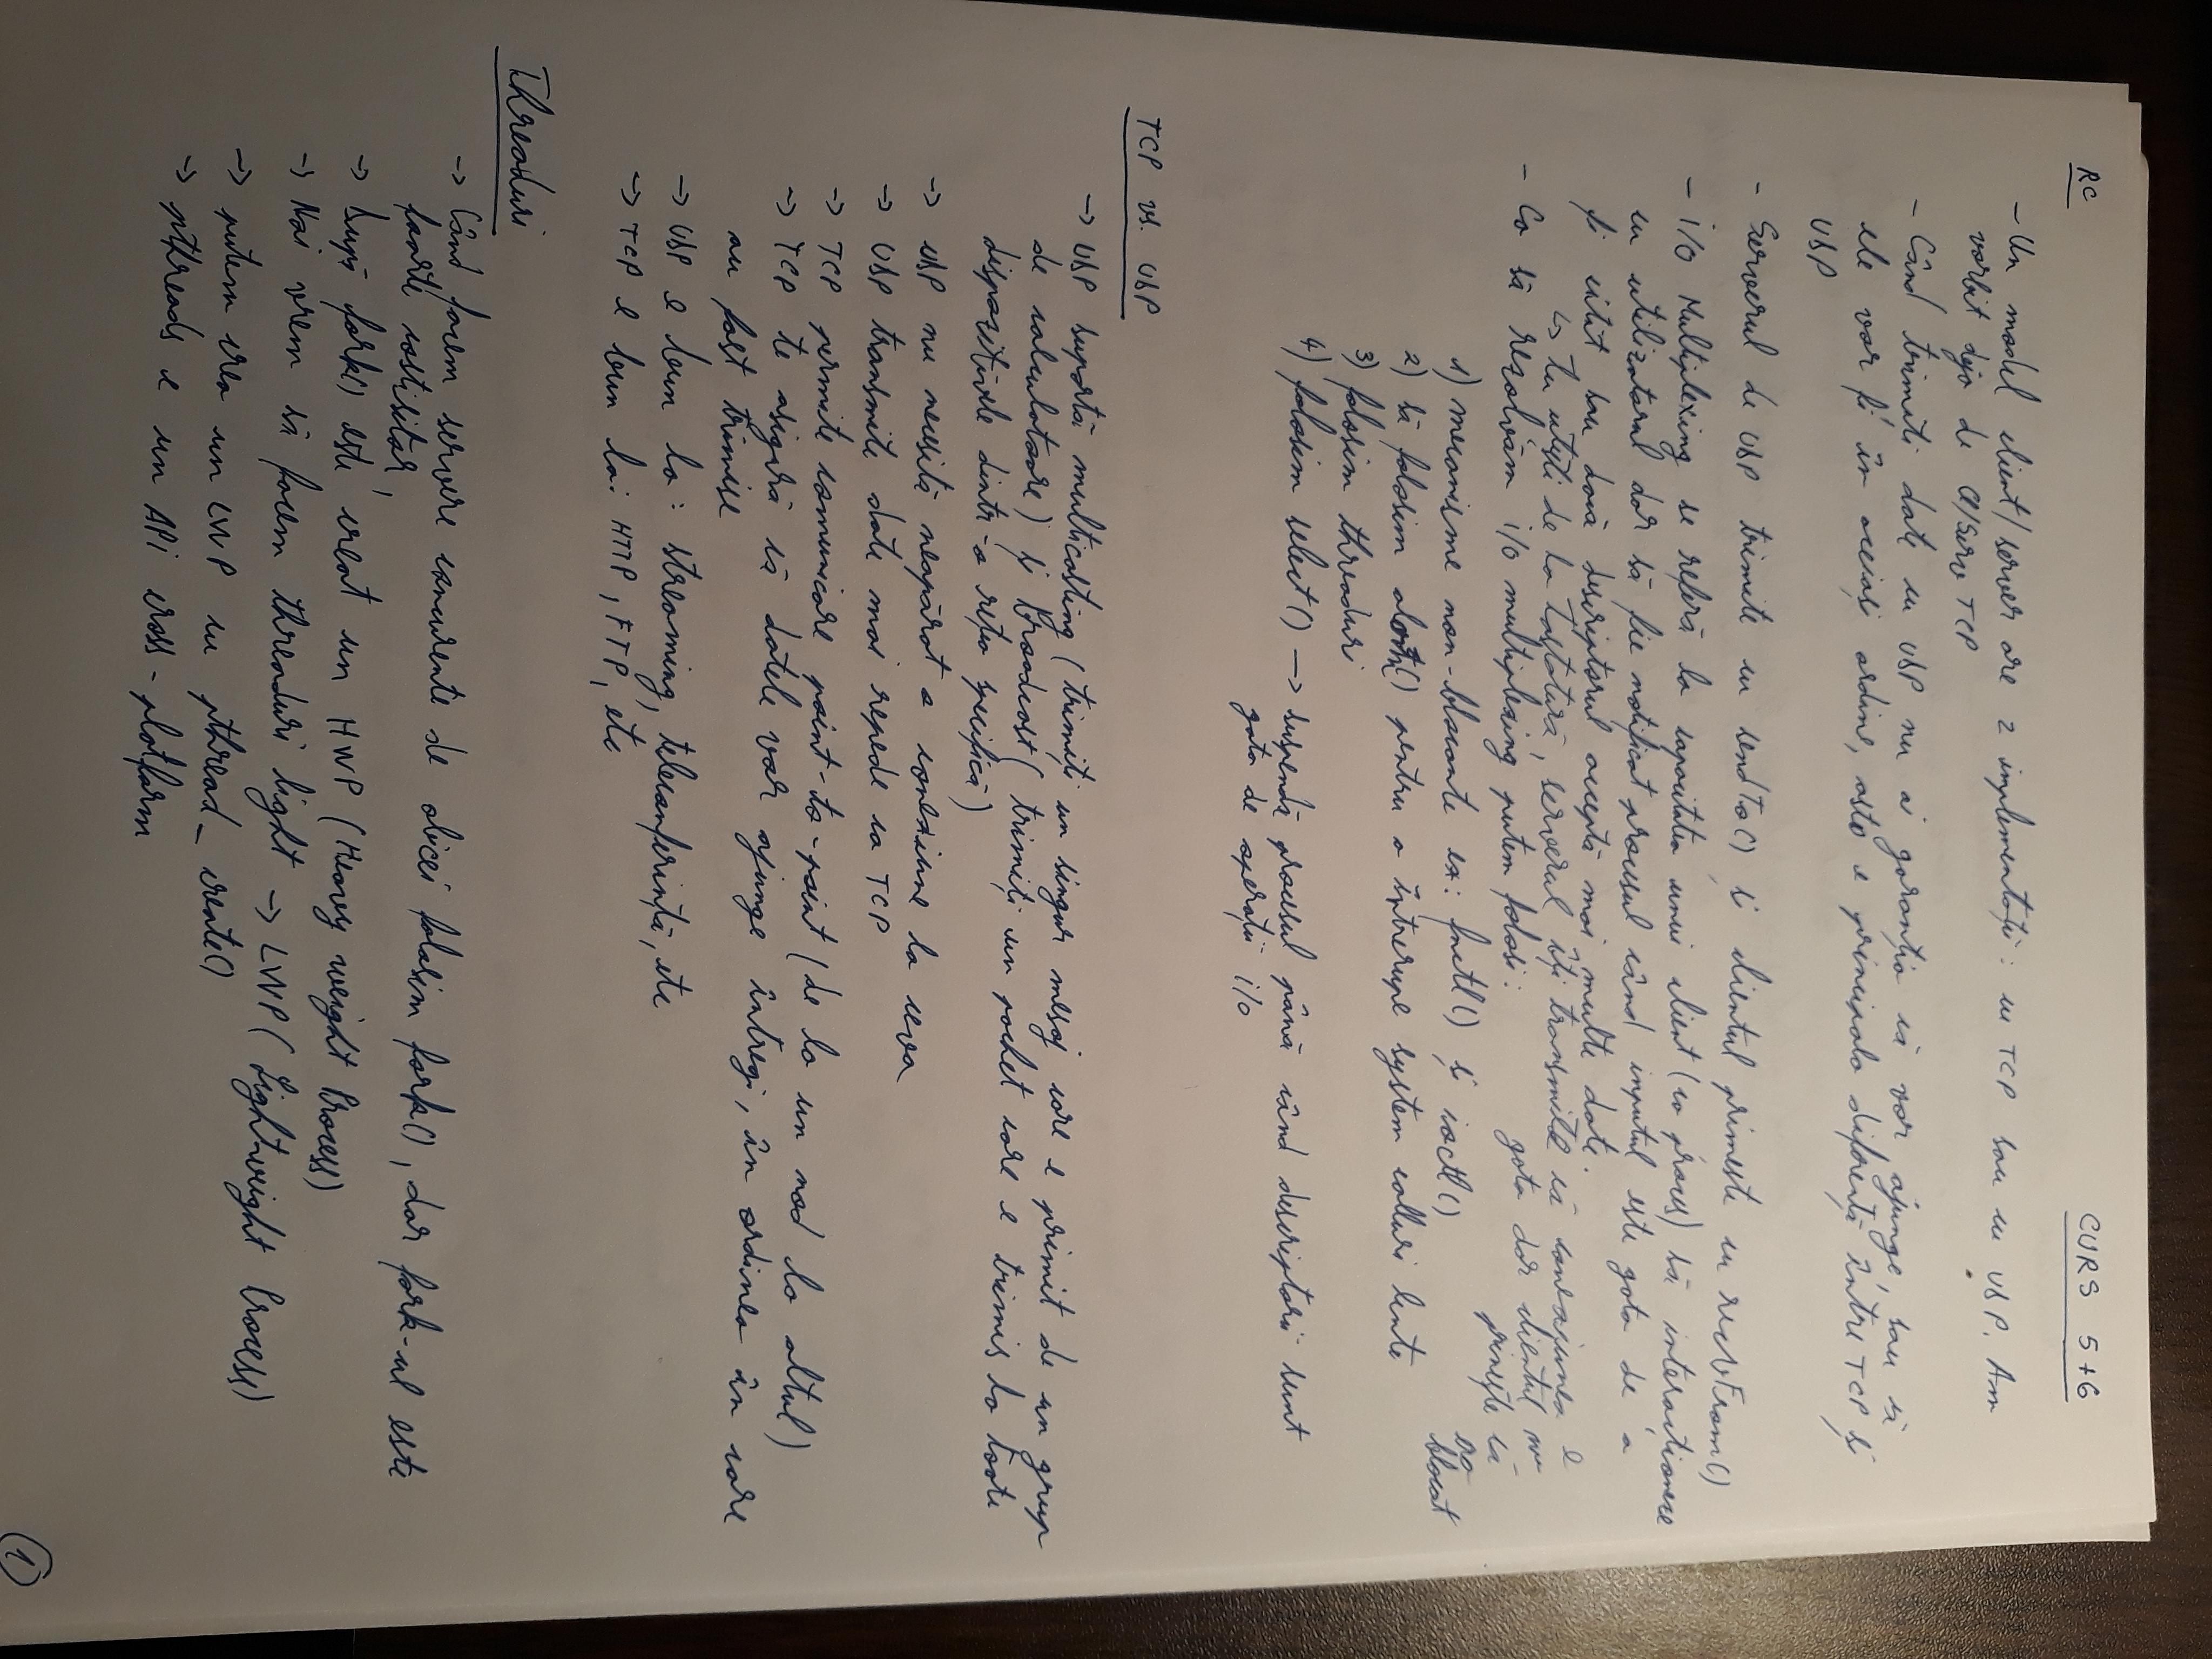 RC
CURS 5+6
- Un model client/server are 2 implementații: cu TCP sau cu UDP. Am
vorbit deja de Cl/Serv TCP
- Când trimiți date cu UDP nu ai garanția că vor ajunge, sau că
ele vor fi în aceiași ordine, asta e principala diferență între TCP și
UDP
- Serverul de UDP trimite cu sendTo() și clientul primește cu recvFrom()
- i/o Multiplexing se referă la capacitatea unui client (ca proces) să interacționeze
cu utilizatorul dar să fie notificat procesul când inputul este gata de a
fi citit sau dacă descriptorul acceptă mai multe date.
↳ tu citești de la tastatură, serverul îți transmite că conexiunea e
gata dar clientul nu
primește că
blocat
- Ca să rezolvăm i/o multiplexing putem folosi:
1) mecanisme non-blocante ex: fnctl() și ioctl()
2) să folosim alarm() pentru a întrerupe system calluri lente
3) folosim threaduri
4) folosim select() -> suspendă procesul până când descriptorii sunt
gata de operații i/o
TCP vs. UDP
-> UDP suportă multicasting (trimiți un singur mesaj care e primit de un grup
de calculatoare) și Broadcast (trimiți un pachet care e trimis la toate
dispozitivele dintr-o rețea specifică)
-> UDP nu necesită neapărat o conexiune la ceva
-> UDP transmite date mai repede ca TCP
-> TCP permite comunicare point-to-point (de la un nod la altul)
-> TCP te asigură că datele vor ajunge întregi, în ordinea în care
au fost trimise
-> UDP e bun la: streaming, teleconferință, etc
-> TCP e bun la: HTTP, FTP, etc
Threaduri
-> Când facem servere concurente de obicei folosim fork(), dar fork-ul este
foarte costisitor,
-> După fork() este creat un HWP (Heavy weight Process)
-> Noi vrem să facem threaduri light -> LWP (Lightweight Process)
-> putem crea un LWP cu pthread_create()
-> pthreads e un API cross-platform
1